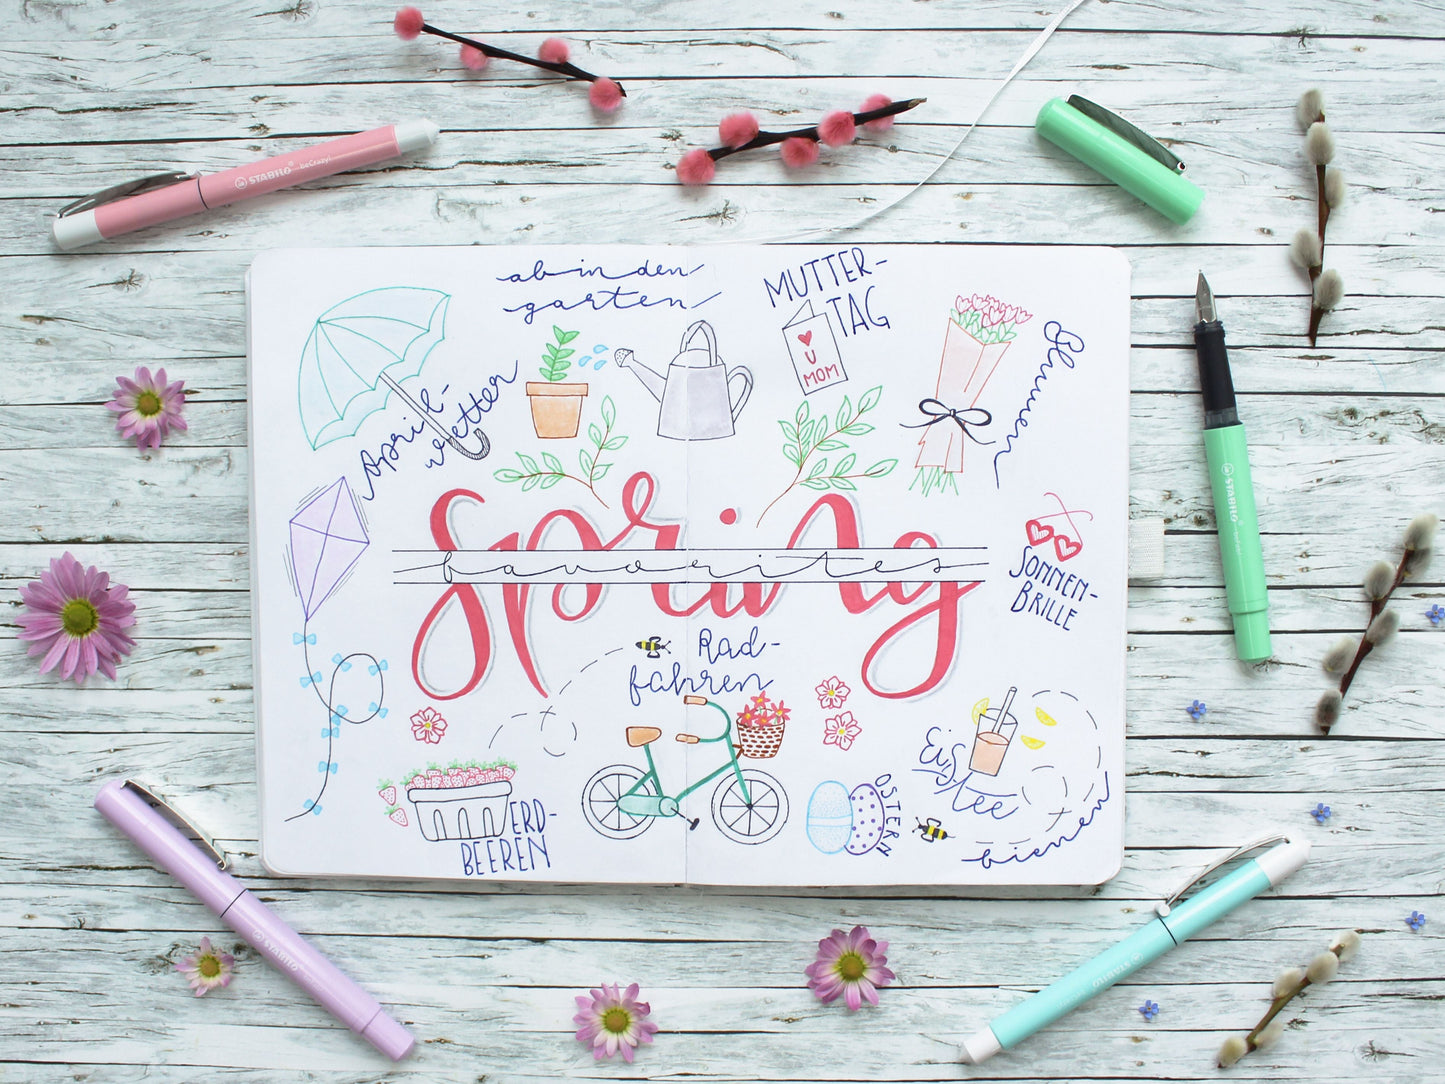 STABILO beCrazy!
ab in den
garten
MUTTER-
TAG
U
MOM
Blumen
April-
wetter
Spring
favorites
SONNEN-
BRILLE
STABILO beCrazy!
Rad-
fahren
Eistee
ERD-
BEEREN
OSTERN
bienen
STABILO
STABILO